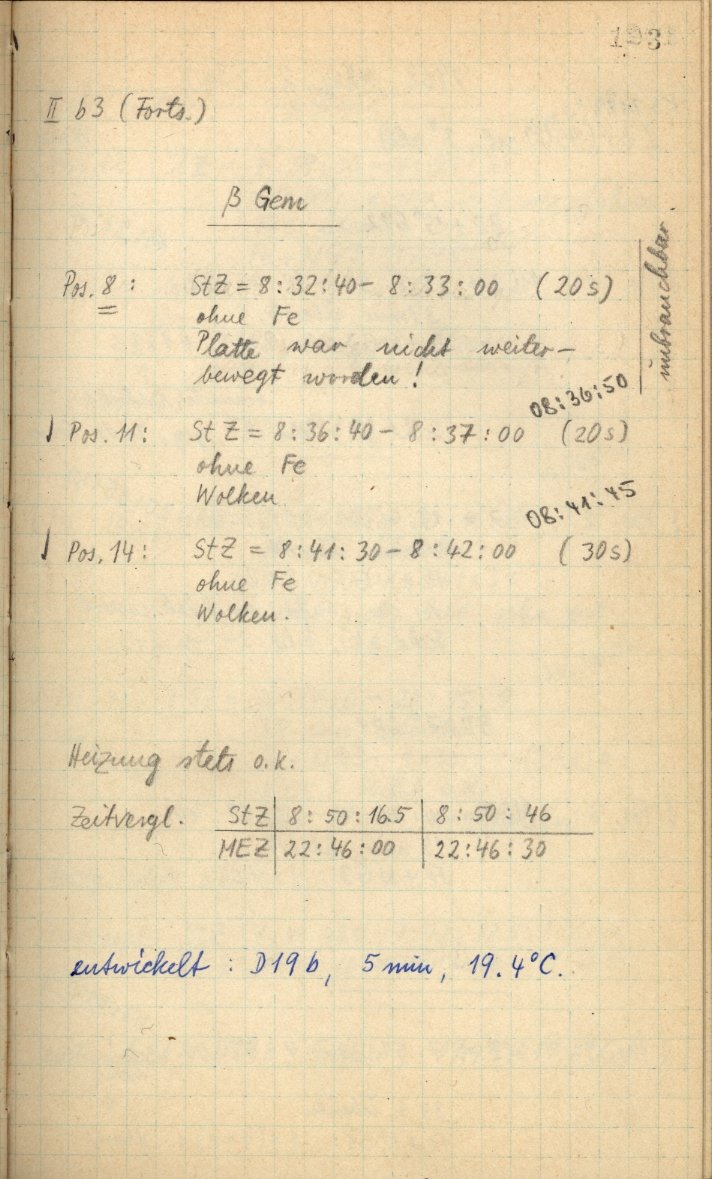 II b3 (Forts.)
β Gem
Pos. 8 : StZ = 8:32:40 – 8:33:00 (20s)
ohne Fe
Platte war nicht weiter-
bewegt worden!
unbrauchbar
08:36:50
Pos. 11: StZ = 8:36:40 – 8:37:00 (20s)
ohne Fe
Wolken
08:41:45
Pos. 14: StZ = 8:41:30 – 8:42:00 (30s)
ohne Fe
Wolken.
Heizung stets o.k.
Zeitvergl. StZ 8:50:16.5 8:50:46
MEZ 22:46:00 22:46:30
entwickelt : D19b, 5 min, 19.4°C.